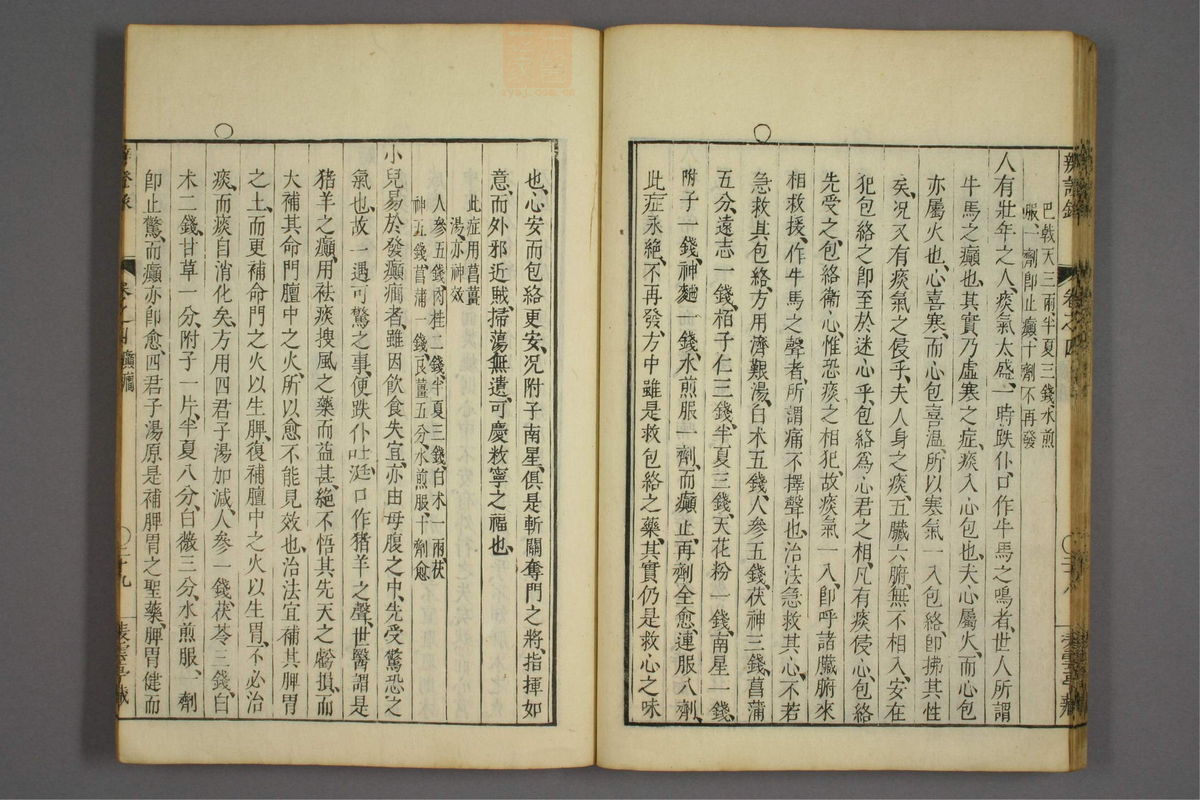 辨證錄 卷之四
巴戟天三兩半夏三錢水煎
服一劑即止癲十劑不再發
人有壯年之人、痰氣太盛、一時跌仆、口作牛馬之鳴者、世人所謂
牛馬之癲也、其實乃虛寒之症、痰入心包也、夫心屬火、而心包
亦屬火也、心喜寒、而心包喜溫、所以寒氣一入包絡、即拂其性
矣、况又有痰氣之侵乎、夫人身之痰、五臟六腑、無不相入、安在
犯包絡之即至於迷心乎、包絡爲心君之相、凡有痰侵心、包絡
先受之、包絡衛心、惟恐痰之相犯、故痰氣一入、即呼諸臟腑來
相救援、作牛馬之聲者、所謂痛不擇聲也、治法急救其心、不若
急救其包絡、方用濟艱湯、白术五錢、人參五錢、茯神三錢、菖蒲
五分、遠志一錢、栢子仁三錢、半夏三錢、天花粉一錢、南星一錢、
附子一錢、神麯一錢、水煎服一劑、而癲止、再劑全愈、連服八劑、
此症永絕、不再發、方中雖是救包絡之藥、其實仍是救心之味
也、心安而包絡更安、况附子南星、俱是斬關奪門之將、指揮如
意、而外邪近賊、掃蕩無遺、可慶敉寧之福也、
此症用菖薑
湯、亦神效
人參五錢、肉桂二錢、半夏三錢、白术一兩、茯
神五錢、菖蒲一錢、良薑五分、水煎服、十劑愈
小兒易於發癲癇者、雖因飲食失宜、亦由母腹之中、先受驚恐之
氣也、故一遇可驚之事、便跌仆吐涎、口作猪羊之聲、世醫謂是
猪羊之癲、用祛痰搜風之藥而益甚、絕不悟其先天之虧損、而
大補其命門膻中之火、所以愈不能見效也、治法宜補其脾胃
之土、而更補命門之火以生脾、復補膻中之火以生胃、不必治
痰、而痰自消化矣、方用四君子湯加減、人參一錢、茯苓三錢、白
术二錢、甘草一分、附子一片、半夏八分、白薇三分、水煎服、一劑
即止驚、而癲亦即愈、四君子湯原是補脾胃之聖藥、脾胃健而
卷之四 癲癇